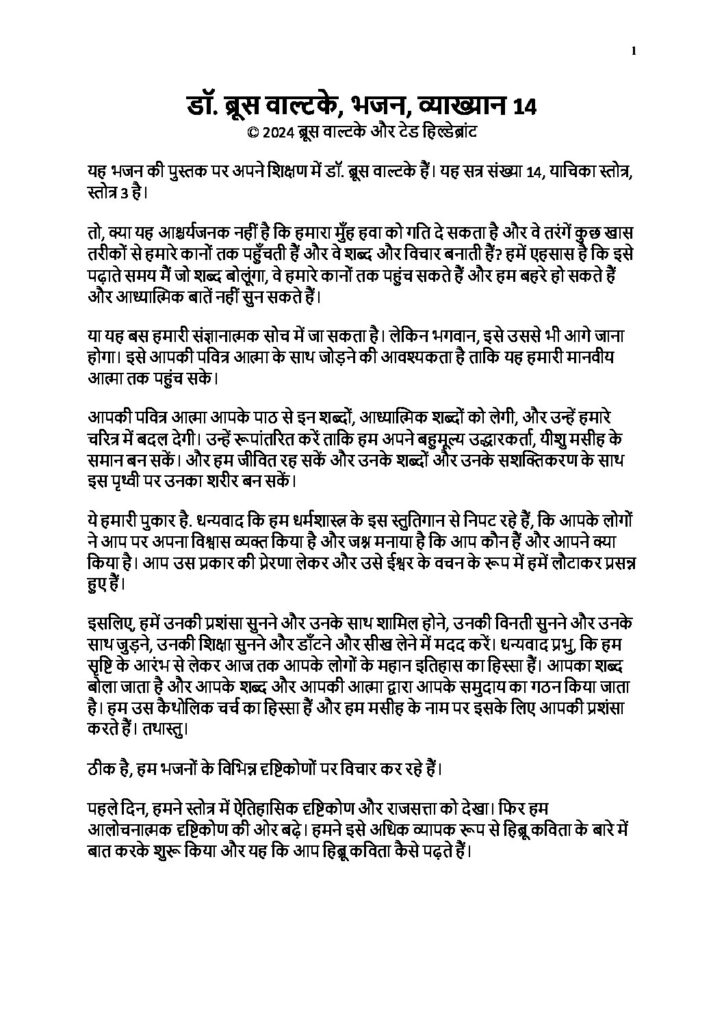 1
डॉ. ब्रूस वाल्टके, भजन, व्याख्यान 14
© 2024 ब्रूस वाल्टके और टेड हिल्डेब्रांट
यह भजन की पुस्तक पर अपने शिक्षण में डॉ. ब्रूस वाल्टके हैं। यह सत्र संख्या 14, याचिका स्तोत्र,
स्तोत्र 3 है।
तो, क्या यह आश्चर्यजनक नहीं है कि हमारा मुँह हवा को गति दे सकता है और वे तरंगें कुछ खास
तरीकों से हमारे कानों तक पहुँचती हैं और वे शब्द और विचार बनाती हैं? हमें एहसास है कि इसे
पढ़ाते समय मैं जो शब्द बोलूंगा, वे हमारे कानों तक पहुंच सकते हैं और हम बहरे हो सकते हैं
और आध्यात्मिक बातें नहीं सुन सकते हैं।
या यह बस हमारी संज्ञानात्मक सोच में जा सकता है। लेकिन भगवान, इसे उससे भी आगे जाना
होगा। इसे आपकी पवित्र आत्मा के साथ जोड़ने की आवश्यकता है ताकि यह हमारी मानवीय
आत्मा तक पहुंच सके।
आपकी पवित्र आत्मा आपके पाठ से इन शब्दों, आध्यात्मिक शब्दों को लेगी, और उन्हें हमारे
चरित्र में बदल देगी। उन्हें रूपांतरित करें ताकि हम अपने बहुमूल्य उद्धारकर्ता, यीशु मसीह के
समान बन सकें। और हम जीवित रह सकें और उनके शब्दों और उनके सशक्तिकरण के साथ
इस पृथ्वी पर उनका शरीर बन सकें।
ये हमारी पुकार है. धन्यवाद कि हम धर्मशास्त्र के इस स्तुतिगान से निपट रहे हैं, कि आपके लोगों
ने आप पर अपना विश्वास व्यक्त किया है और जश्न मनाया है कि आप कौन हैं और आपने क्या
किया है। आप उस प्रकार की प्रेरणा लेकर और उसे ईश्वर के वचन के रूप में हमें लौटाकर प्रसन्न
हुए हैं।
इसलिए, हमें उनकी प्रशंसा सुनने और उनके साथ शामिल होने, उनकी विनती सुनने और उनके
साथ जुड़ने, उनकी शिक्षा सुनने और डाँटने और सीख लेने में मदद करें। धन्यवाद प्रभु, कि हम
सृष्टि के आरंभ से लेकर आज तक आपके लोगों के महान इतिहास का हिस्सा हैं। आपका शब्द
बोला जाता है और आपके शब्द और आपकी आत्मा द्वारा आपके समुदाय का गठन किया जाता
है। हम उस कैथोलिक चर्च का हिस्सा हैं और हम मसीह के नाम पर इसके लिए आपकी प्रशंसा
करते हैं। तथास्तु।
ठीक है, हम भजनों के विभिन्न दृष्टिकोणों पर विचार कर रहे हैं।
पहले दिन, हमने स्तोत्र में ऐतिहासिक दृष्टिकोण और राजसत्ता को देखा। फिर हम
आलोचनात्मक दृष्टिकोण की ओर बढ़े। हमने इसे अधिक व्यापक रूप से हिब्रू कविता के बारे में
बात करके शुरू किया और यह कि आप हिब्रू कविता कैसे पढ़ते हैं।